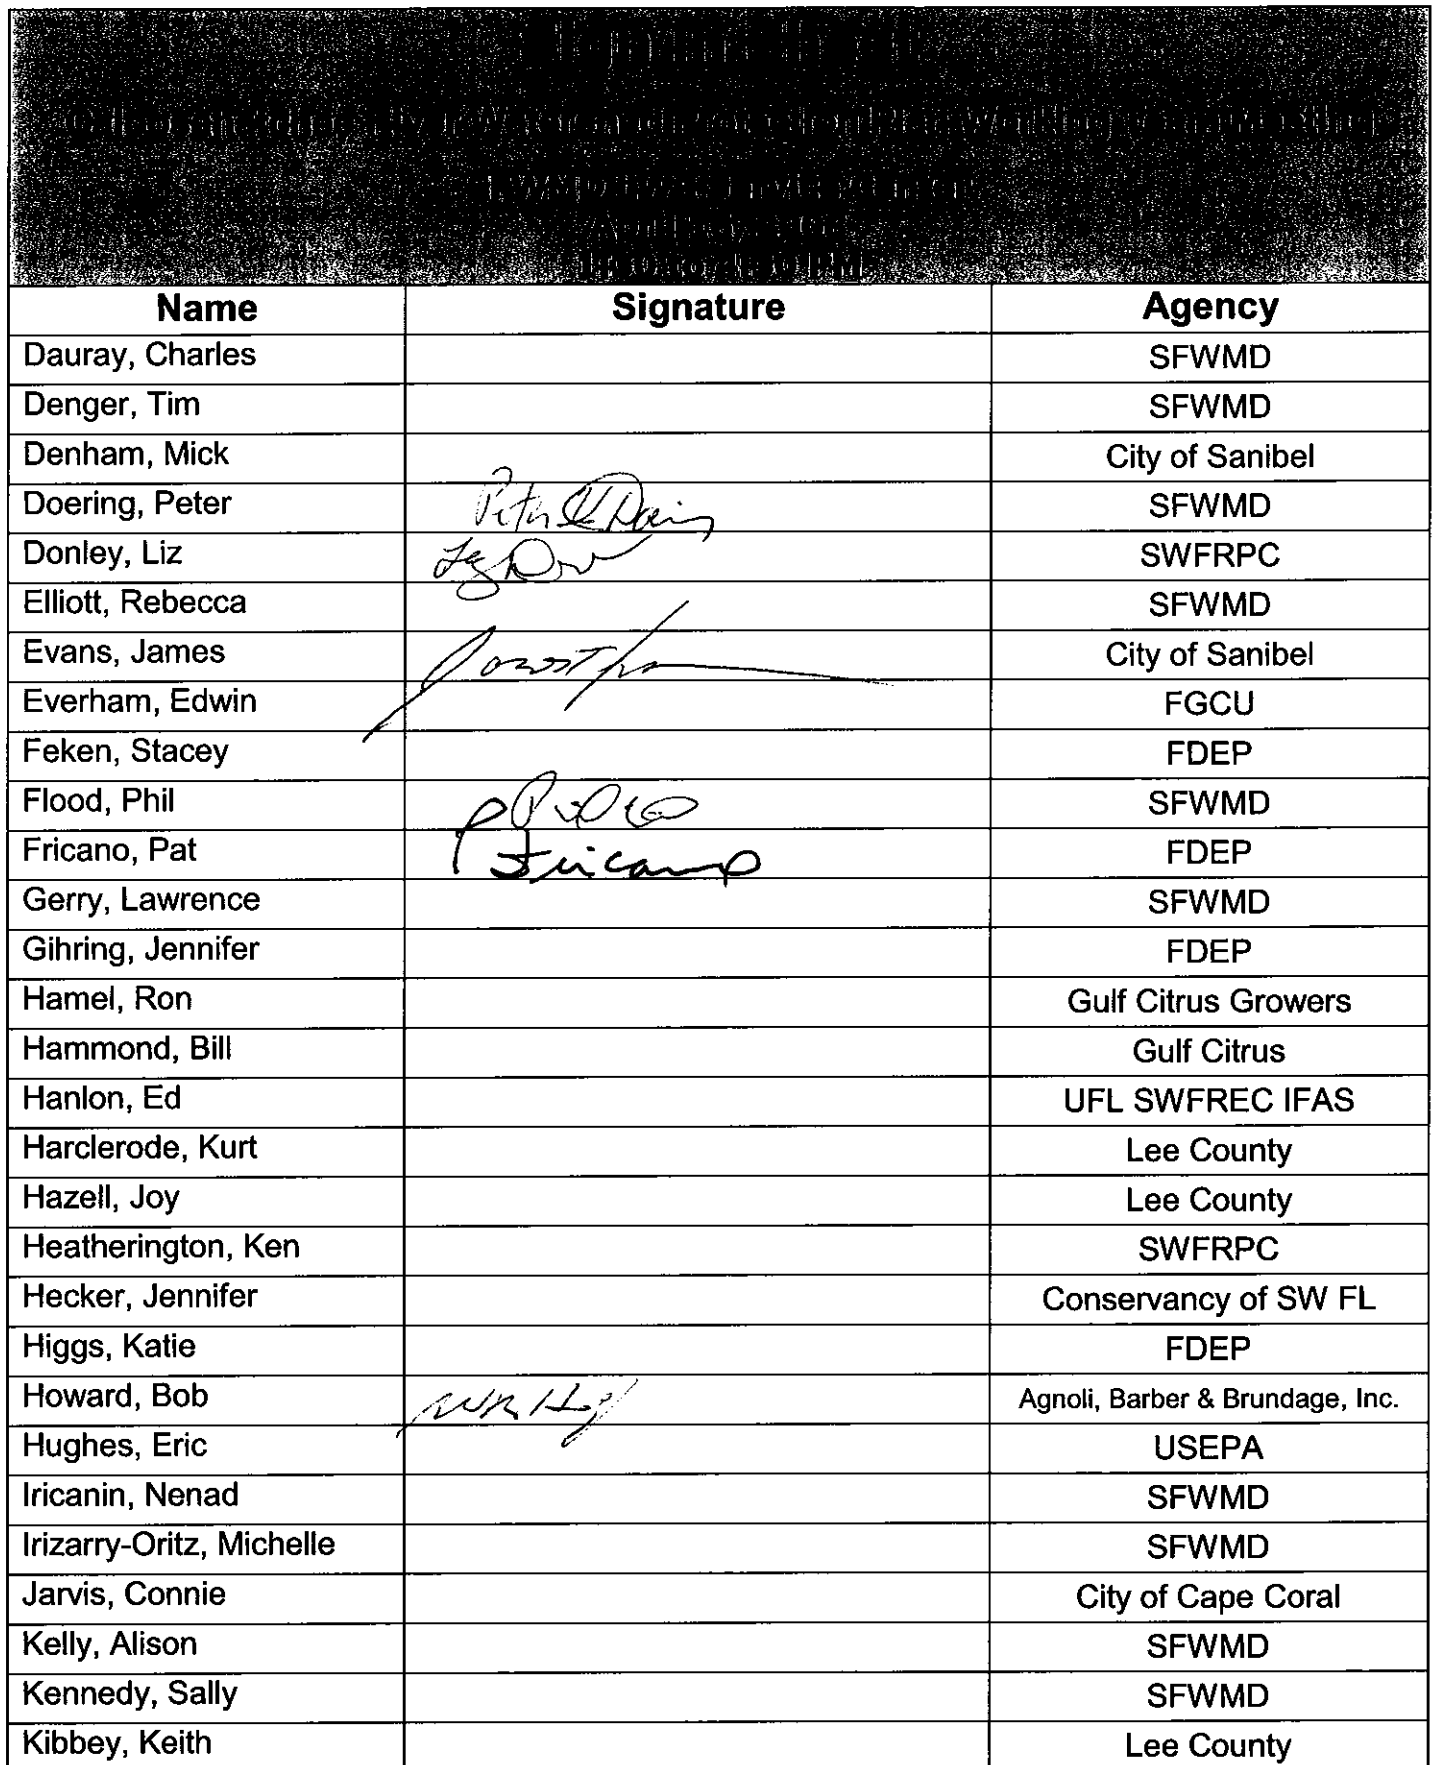 Name Signature Agency
Dauray, Charles SFWMD
Denger, Tim SFWMD
Denham, Mick City of Sanibel
Doering, Peter SFWMD
Donley, Liz SWFRPC
Elliott, Rebecca SFWMD
Evans, James City of Sanibel
Everham, Edwin FGCU
Feken, Stacey FDEP
Flood, Phil SFWMD
Fricano, Pat P Fricano FDEP
Gerry, Lawrence SFWMD
Gihring, Jennifer FDEP
Hamel, Ron Gulf Citrus Growers
Hammond, Bill Gulf Citrus
Hanlon, Ed UFL SWFREC IFAS
Harclerode, Kurt Lee County
Hazell, Joy Lee County
Heatherington, Ken SWFRPC
Hecker, Jennifer Conservancy of SW FL
Higgs, Katie FDEP
Howard, Bob Agnoli, Barber & Brundage, Inc.
Hughes, Eric USEPA
Iricanin, Nenad SFWMD
Irizarry-Oritz, Michelle SFWMD
Jarvis, Connie City of Cape Coral
Kelly, Alison SFWMD
Kennedy, Sally SFWMD
Kibbey, Keith Lee County